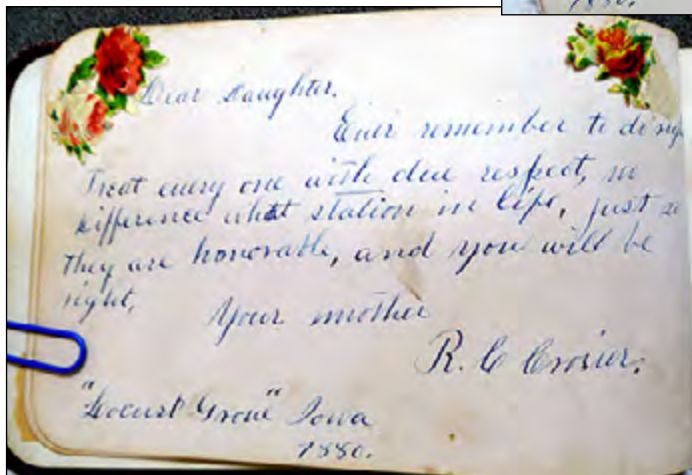 1880.
Dear Daughter.
Ever remember to do
Treat every one with due respect, no
difference what station in life, just so
they are honorable, and you will be
right,
Your mother
R. C Crosier.
"Locust Grove" Iowa
1880.